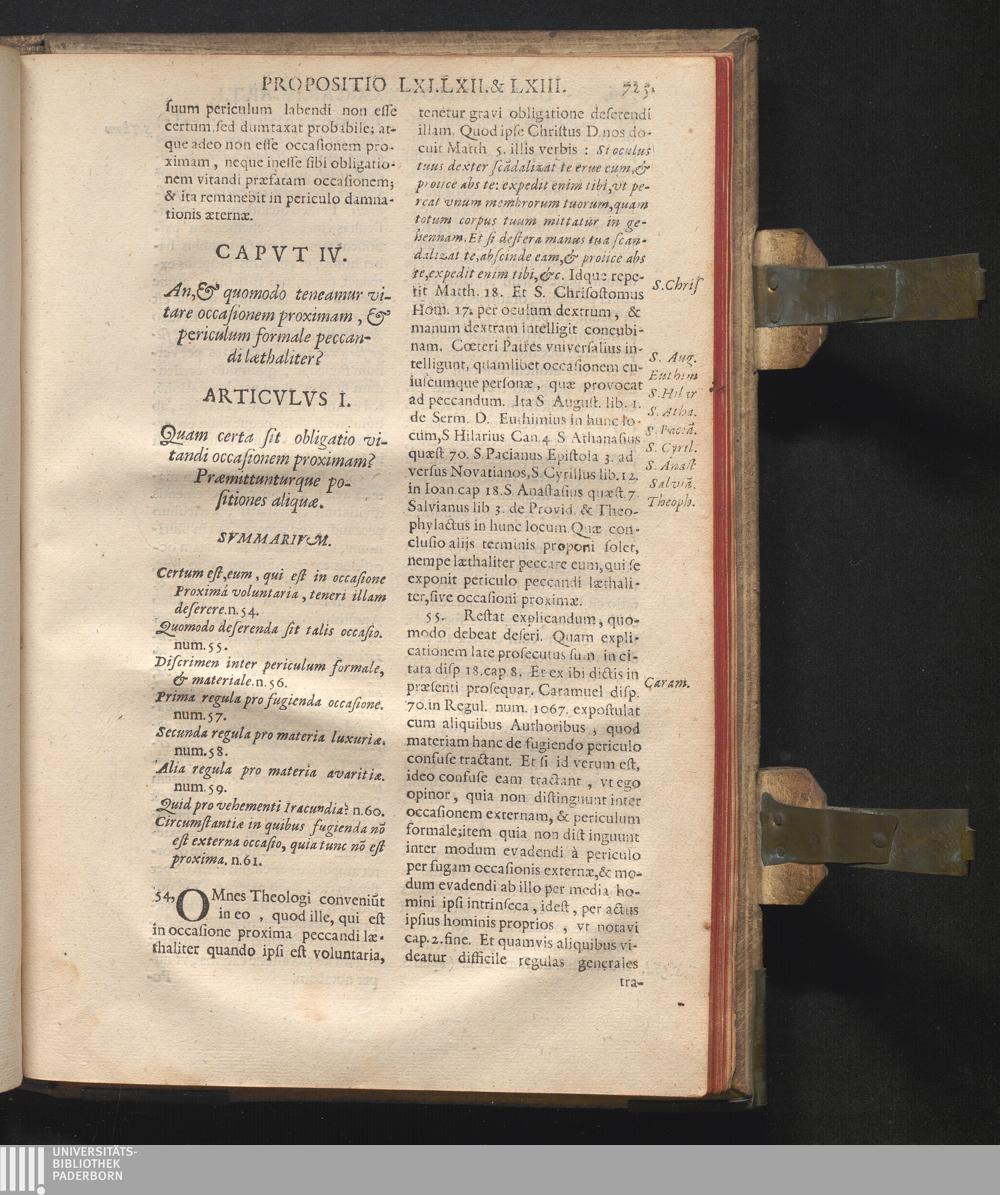 PROPOSITIO LXI.LXII.& LXIII. 725.
suum periculum labendi non esse
certum, sed dumtaxat probabile; at-
que adeo non esse occasionem pro-
ximam, neque inesse sibi obligatio-
nem vitandi præfatam occasionem;
& ita remanebit in periculo damna-
tionis æternæ.
CAPVT IV.
An, & quomodo teneamur vi-
tare occasionem proximam, &
periculum formale peccan-
di læthaliter?
ARTICVLVS I.
Quam certa sit obligatio vi-
tandi occasionem proximam?
Præmittunturque po-
sitiones aliquæ.
SVMMARIVM.
Certum est, eum, qui est in occasione
Proximá voluntaria, teneri illam
deserere. n. 54.
Quomodo deserenda sit talis occasio.
num. 55.
Discrimen inter periculum formale,
& materiale. n. 56.
Prima regula pro fugienda occasione.
num. 57.
Secunda regula pro materia luxuriæ.
num. 58.
Alia regula pro materia avaritiæ.
num. 59.
Quid pro vehementi Iracundia? n. 60.
Circumstantiæ in quibus fugienda nō
est externa occasio, quia tunc nō est
proxima. n. 61.
54, OMnes Theologi conveniūt
in eo, quod ille, qui est
in occasione proxima peccandi læ-
thaliter quando ipsi est voluntaria,
tenetur gravi obligatione deserendi
illam. Quod ipse Christus D. nos do-
cuit Matth 5. illis verbis: Si oculus
tuus dexter scādalizat te erue eum, &
proiice abs te: expedit enim tibi, vt pe-
reat vnum membrorum tuorum, quam
totum corpus tuum mittatur in ge-
hennam. Et si destera manus tua scan-
dalizat te, abscinde eam, & proiice abs
te, expedit enim tibi, &c. Idque repe-
tit Matth. 18. Et S. Chrisostomus
Hom. 17. per oculum dextrum, &
manum dextram intelligit concubi-
nam. Cœteri Patres vniversalius in-
telligunt, quamlibet occasionem cu-
iuscumque personæ, quæ provocat
ad peccandum. Ita S August. lib. 1.
de Serm. D. Euthimius in hunc lo-
cum, S Hilarius Can. 4 S Athanasius
quæst 70. S. Pacianus Epistola 3. ad
versus Novatianos, S. Cyrillus lib. 12.
in Ioan. cap 18. S. Anastasius quæst. 7.
Salvianus lib 3. de Provid. & Theo-
phylactus in hunc locum. Quæ con-
clusio alijs terminis proponi solet,
nempe læthaliter peccare eum, qui se
exponit periculo peccandi læthali-
ter, sive occasioni proximæ.
55. Restat explicandum, quo-
modo debeat deseri. Quam expli-
cationem late prosecutus sum in ci-
tata disp 18. cap 8. Et ex ibi dictis in
præsenti prosequar. Caramuel disp.
70. in Regul. num. 1067. expostulat
cum aliquibus Authoribus, quod
materiam hanc de fugiendo periculo
confuse tractant. Et si id verum est,
ideo confuse eam tractant, vt ego
opinor, quia non distinguunt inter
occasionem externam, & periculum
formale, item quia non distinguunt
inter modum evadendi à periculo
per fugam occasionis externæ, & mo-
dum evadendi ab illo per media ho-
mini ipsi intrinseca, idest, per actus
ipsius hominis proprios, vt notavi
cap. 2. fine. Et quamvis aliquibus vi-
deatur difficile regulas generales
tra-
S. Chris
S. Aug.
Euthim
S. Hilir
S. Atha.
S. Paciā.
S. Cyril.
S. Anast
Salviā.
Theoph.
Caram.
UNIVERSITÄTS-
BIBLIOTHEK
PADERBORN